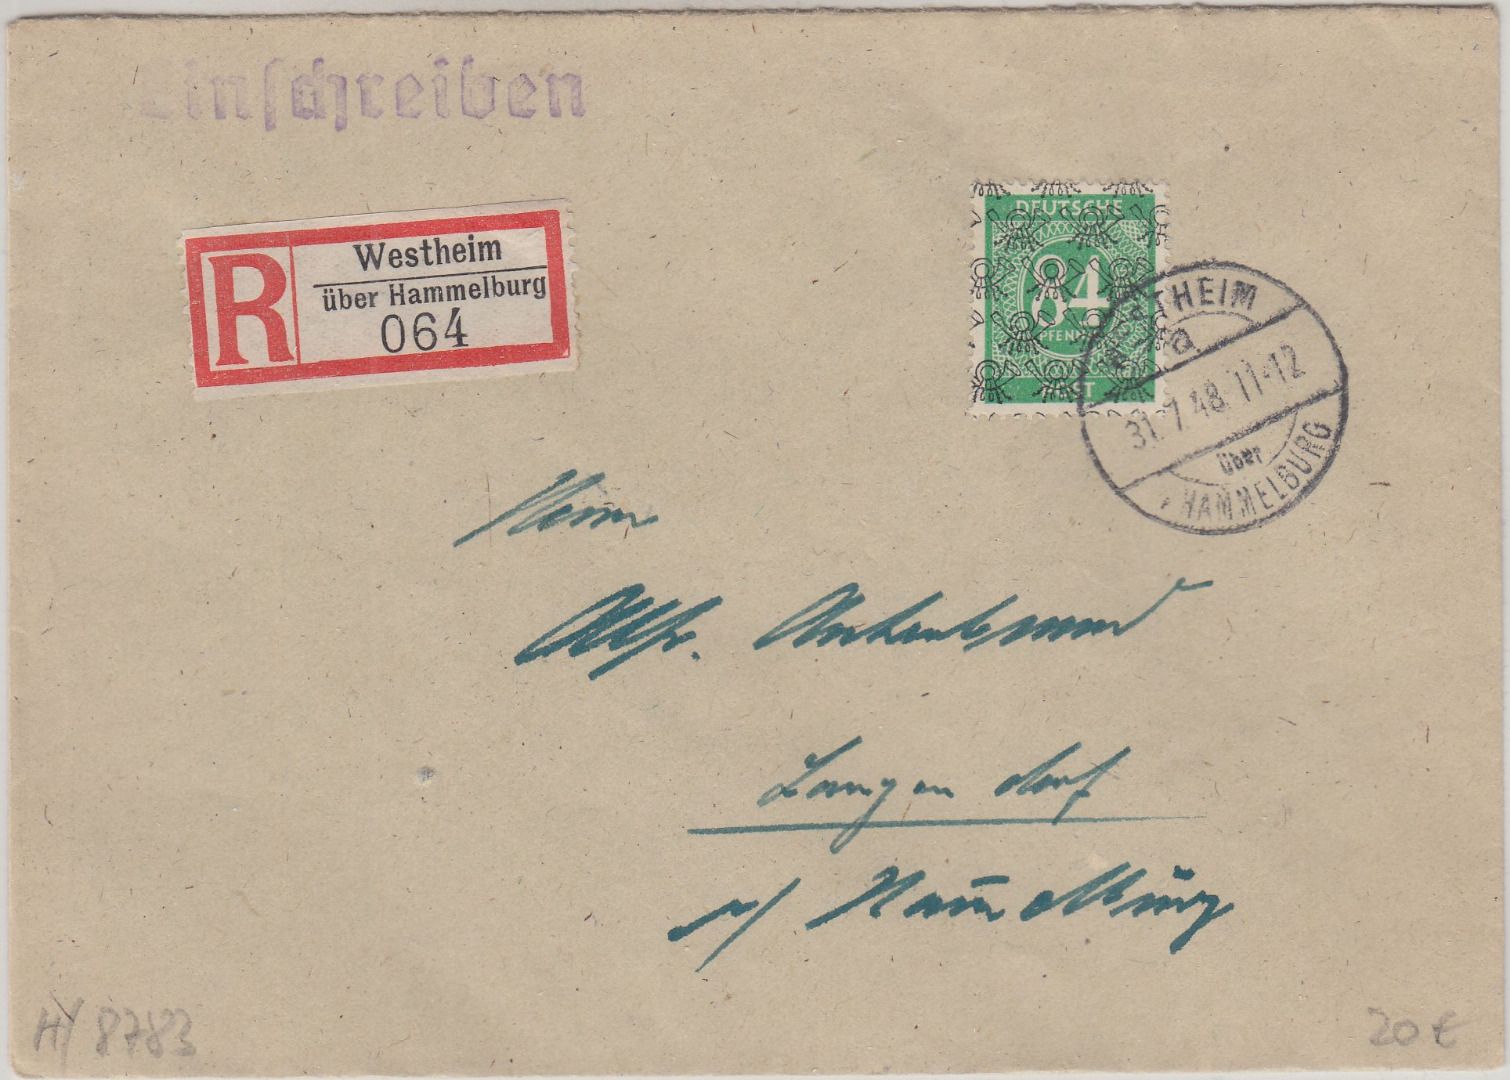 Einschreiben
R
Westheim
über Hammelburg
064
DEUTSCHE
84
PFENNIG
POST
WESTHEIM
31.7.48.11-12
über
HAMMELBURG
Herrn
Alfr.
Langendorf
Hammelburg
8783
20 €